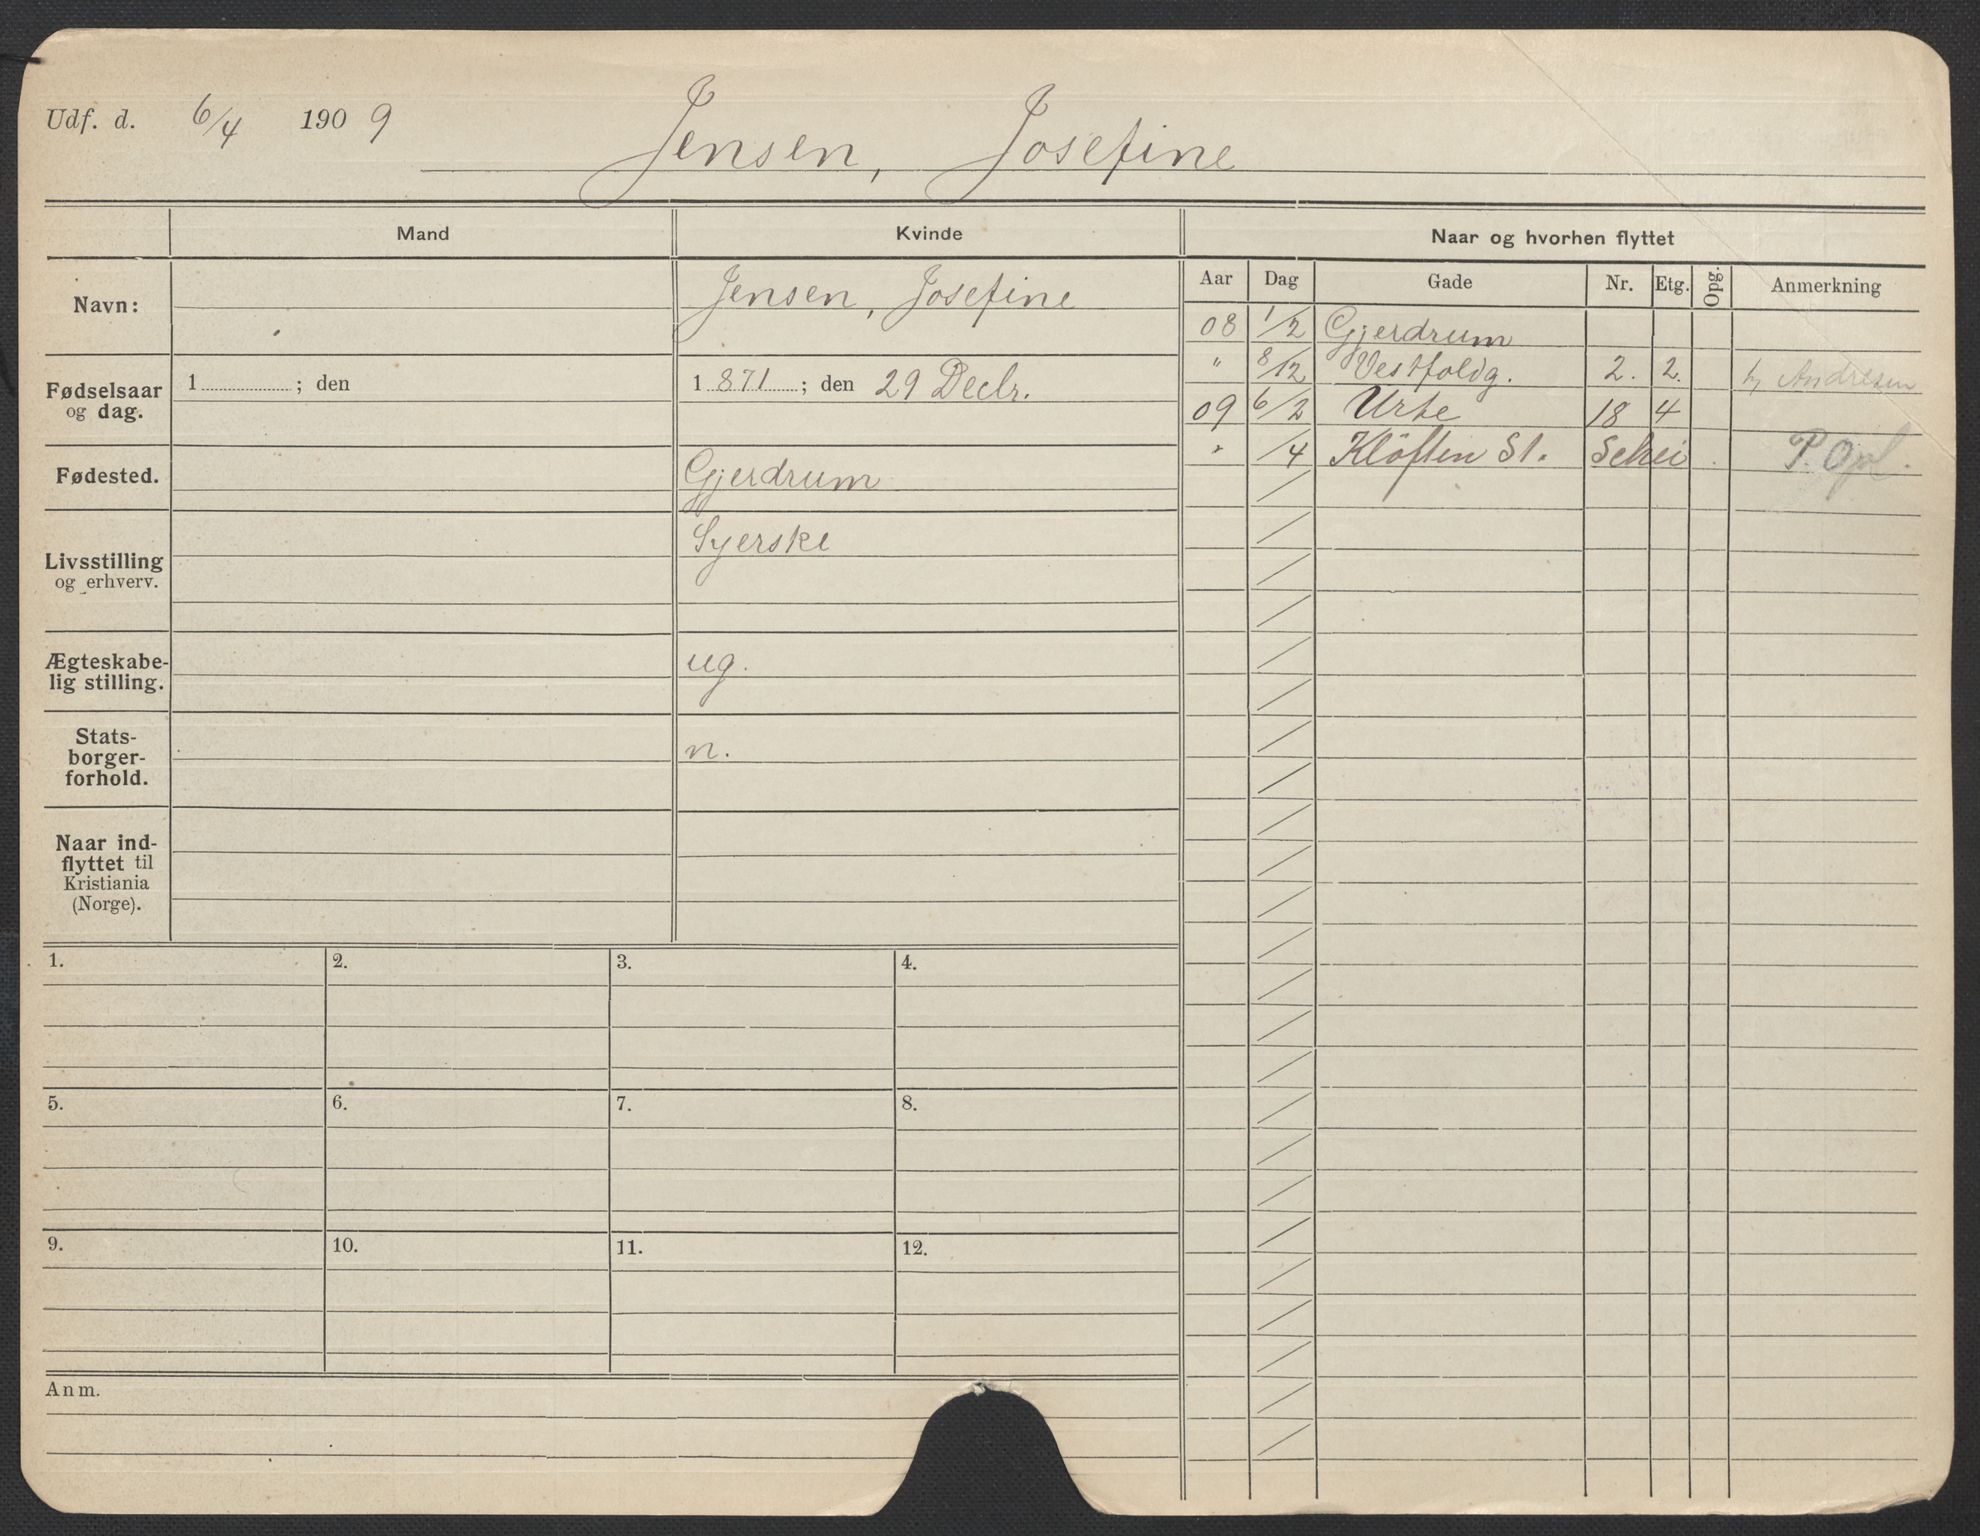 Udf. d. 6/4 1909
Jensen, Josefine
Mand
Kvinde
Naar og hvorhen flyttet
Aar Dag Gade Nr. Etg. Opg. Anmerkning
Navn:
Jensen, Josefine
Fødselsaar
og dag.
1 ; den
1871 ; den 29 Decbr.
Fødested.
Gjerdrum
Livsstilling
og erhverv.
Syerske
Ægteskabe-
lig stilling.
ug.
Stats-
borger-
forhold.
n.
Naar ind-
flyttet til
Kristiania
(Norge).
08 1/2 Gjerdrum
" 8/12 Vestfoldg. 2. 2. Andresen
09 6/2 Urte 18 4
" /4 Kløften St.
1. 2. 3. 4.
5. 6. 7. 8.
9. 10. 11. 12.
Anm.